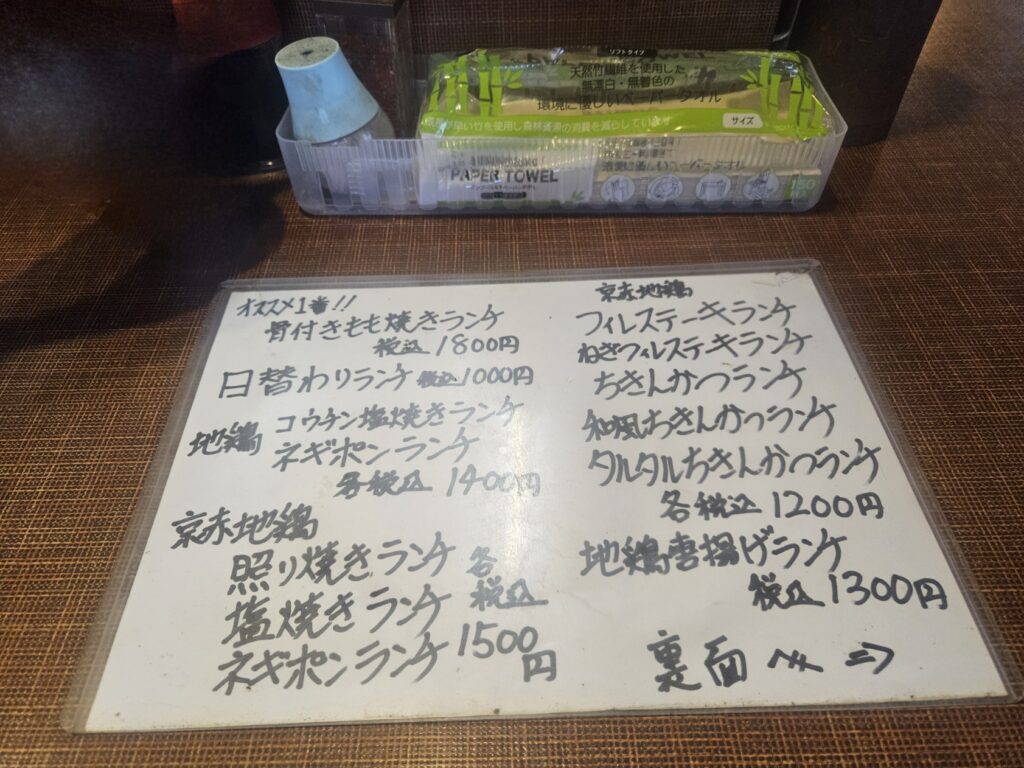 ソフトタイプ
天然竹繊維を使用した
無漂白・無着色の
環境に優しいペーパータオル
成長が早い竹を使用し森林資源の消費を減らしています
サイズ
PAPER TOWEL
環境に優しいペーパータオル
150
オススメ1番!!
骨付きもも焼きランチ
税込1800円
日替わりランチ 税込1000円
地鶏 コウチン塩焼きランチ
ネギポンランチ
各税込 1400円
京赤地鶏
照り焼きランチ 各
塩焼きランチ 税込
ネギポンランチ 1500円
京赤地鶏
フィレステーキランチ
ねぎフィレステキランチ
ちきんかつランチ
和風ちきんかつランチ
タルタルちきんかつランチ
各税込1200円
地鶏唐揚げランチ
税込1300円
裏面へ ⇒